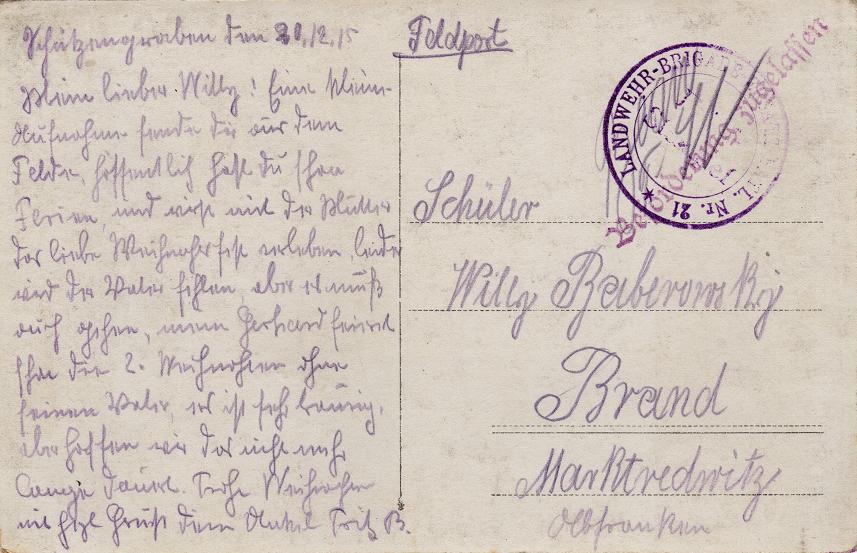 Schützengraben den 20.12.15
Mein lieber Willy! Eine kleine
Aufnahme sende dir aus dem
Felde, hoffentlich hast du schon
Ferien, und wirst mit der Mutter
das liebe Weihnachtsfest verleben, leider
wird der Vater fehlen, aber es muß
auch gehen, mein Gerhard feiert
schon die 2. Weihnachten ohne
seinen Vater, es ist sehr traurig,
aber hoffen wir das nicht mehr
lange dauert. Frohe Weihnachten
mit hzl Gruß dein Onkel Fritz B.
Feldpost
LANDWEHR-BRIGADE BATL. Nr. 21
Beförderung zugelassen
Schüler
Willy Baberowsky
Brand
Marktredwitz
Obfranken